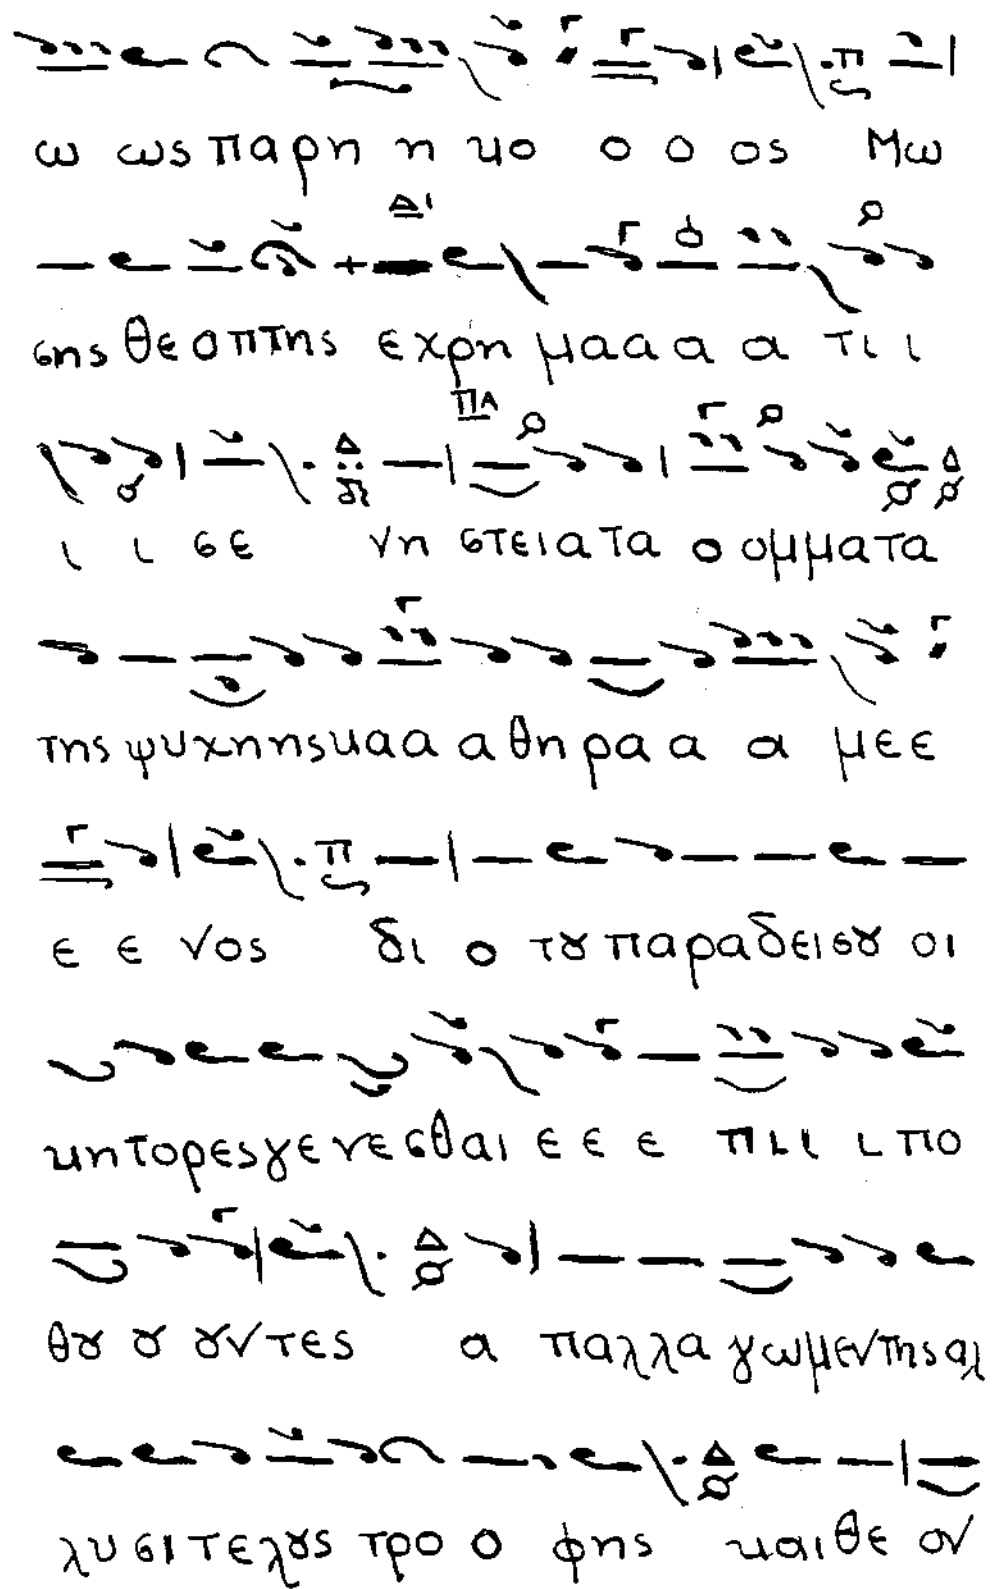 ω ως παρη η κο ο ο ος Μω
σης θεοπτης εχρη μααα α τι ι
ι ι σε νη στειατα ο ομματα
της ψυχηηςκαα α θηραα α μεε
ε ε νος δι ο τȣ παραδεισȣ οι
κητορεςγενεσθαι ε ε ε πιι ι πο
θȣ ȣ ȣντες α παλλα γωμεντηςαλ
λυσιτελȣς τρο ο φης καιθε ον